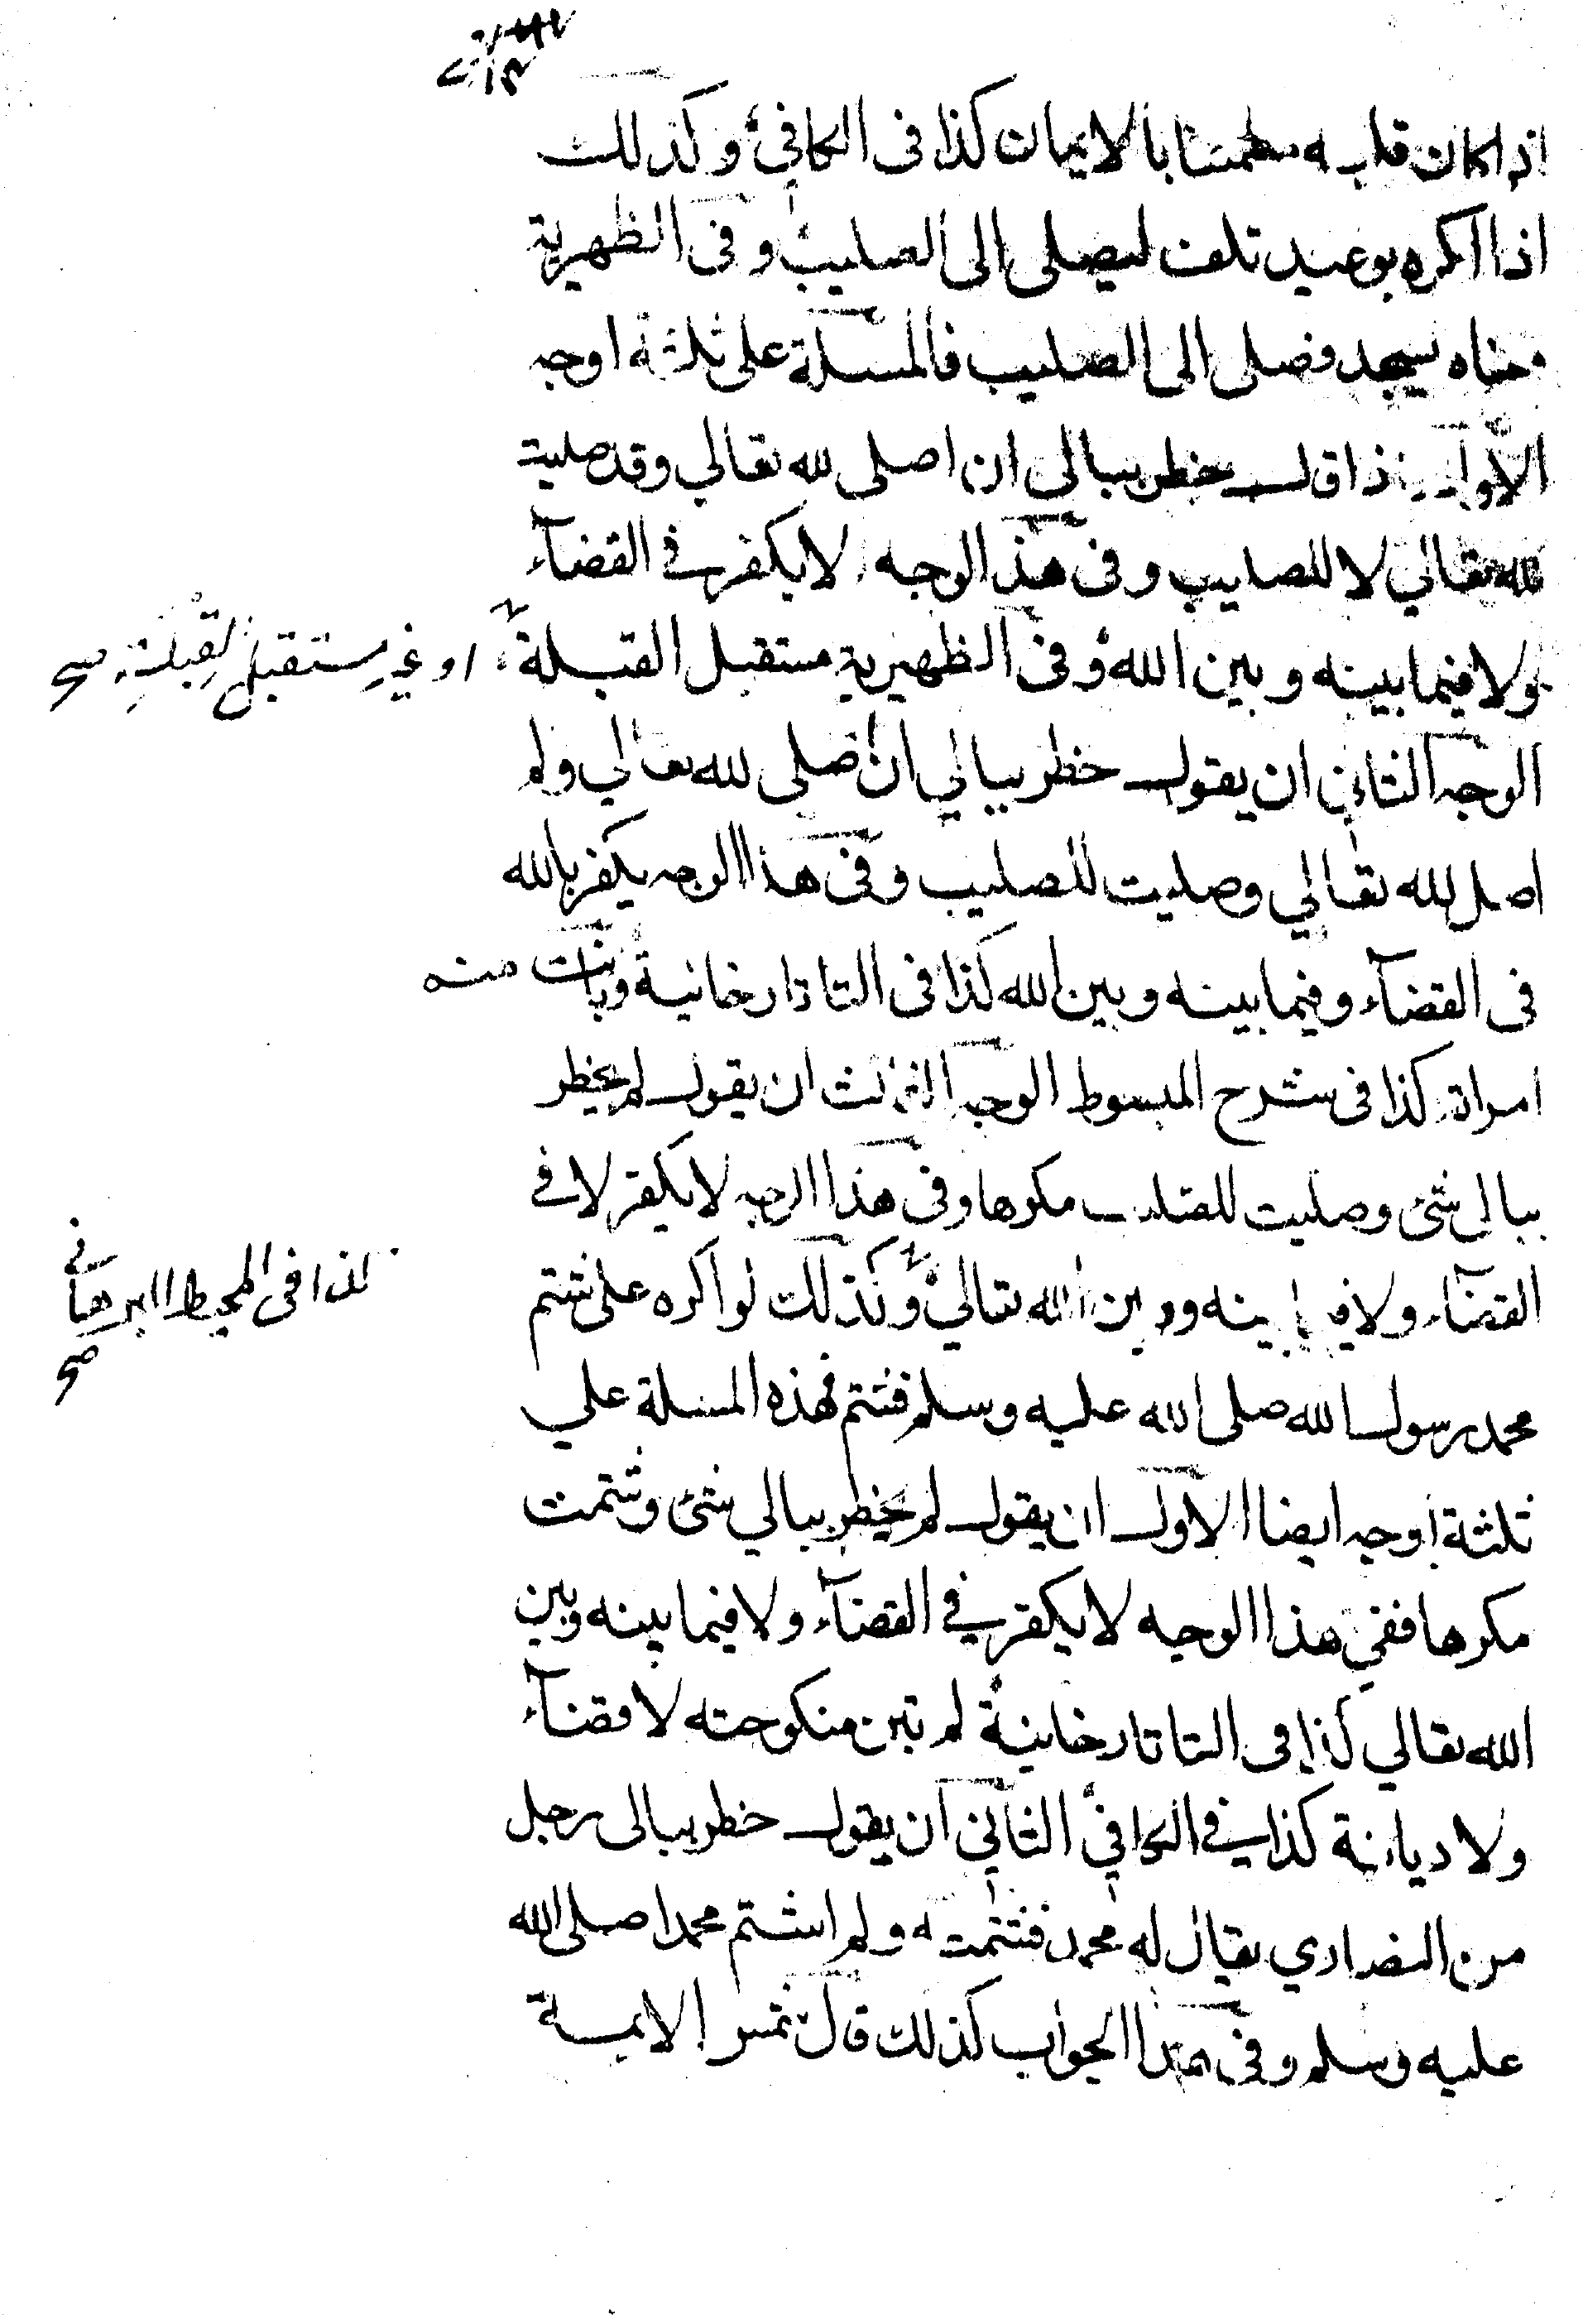 اذا كان قلبه مطمئنا بالايمان كذا في الكافي وكذلك
اذا اكره بوعيد تلف ليصلى الى الصليب وفى الظهيرية
معناه يسجد فصلى الى الصليب فالمسلة على ثلثة اوجه
الاول اذا قال خطر ببالي ان اصلى لله تعالي وقد صليت
لله تعالي لا للصليب وفى هذا الوجه لا يكفر في القضآء
ولا فيما بينه وبين الله وفى الظهيرية مستقبل القبلة او غير مستقبل القبلة صح
الوجه الثاني ان يقول خطر ببالي ان اصلى لله تعالي ولم
اصل لله تعالي وصليت للصليب وفى هذا الوجه يكفر بالله
فى القضآء وفيما بينه وبين الله كذا فى التاتارخانية وبانت منه
امراته كذا فى شرح المبسوط الوجه الثالث ان يقول لم يخطر
ببالى شئ وصليت للصليب مكرها وفى هذا الوجه لا يكفر لا في
القضآء ولا فيما بينه وبين الله تعالي وكذلك لو اكره على شتم
كذا فى المحيط البرهاني
صح
محمد رسول الله صلى الله عليه وسلم فشتم فهذه المسلة علي
ثلثة اوجه ايضا الاول ان يقول لم يخطر ببالي شئ وشتمت
مكرها ففي هذا الوجه لا يكفر في القضآء ولا فيما بينه وبين
الله تعالي كذا فى التاتارخانية لم تبن منكوحته لا قضآء
ولا ديانة كذا في الكافي الثاني ان يقول خطر ببالى رجل
من النصارى يقال له محمد فشتمته ولم اشتم محمدا صلى الله
عليه وسلم وفى هذا الجواب كذلك قال شمس الايمة